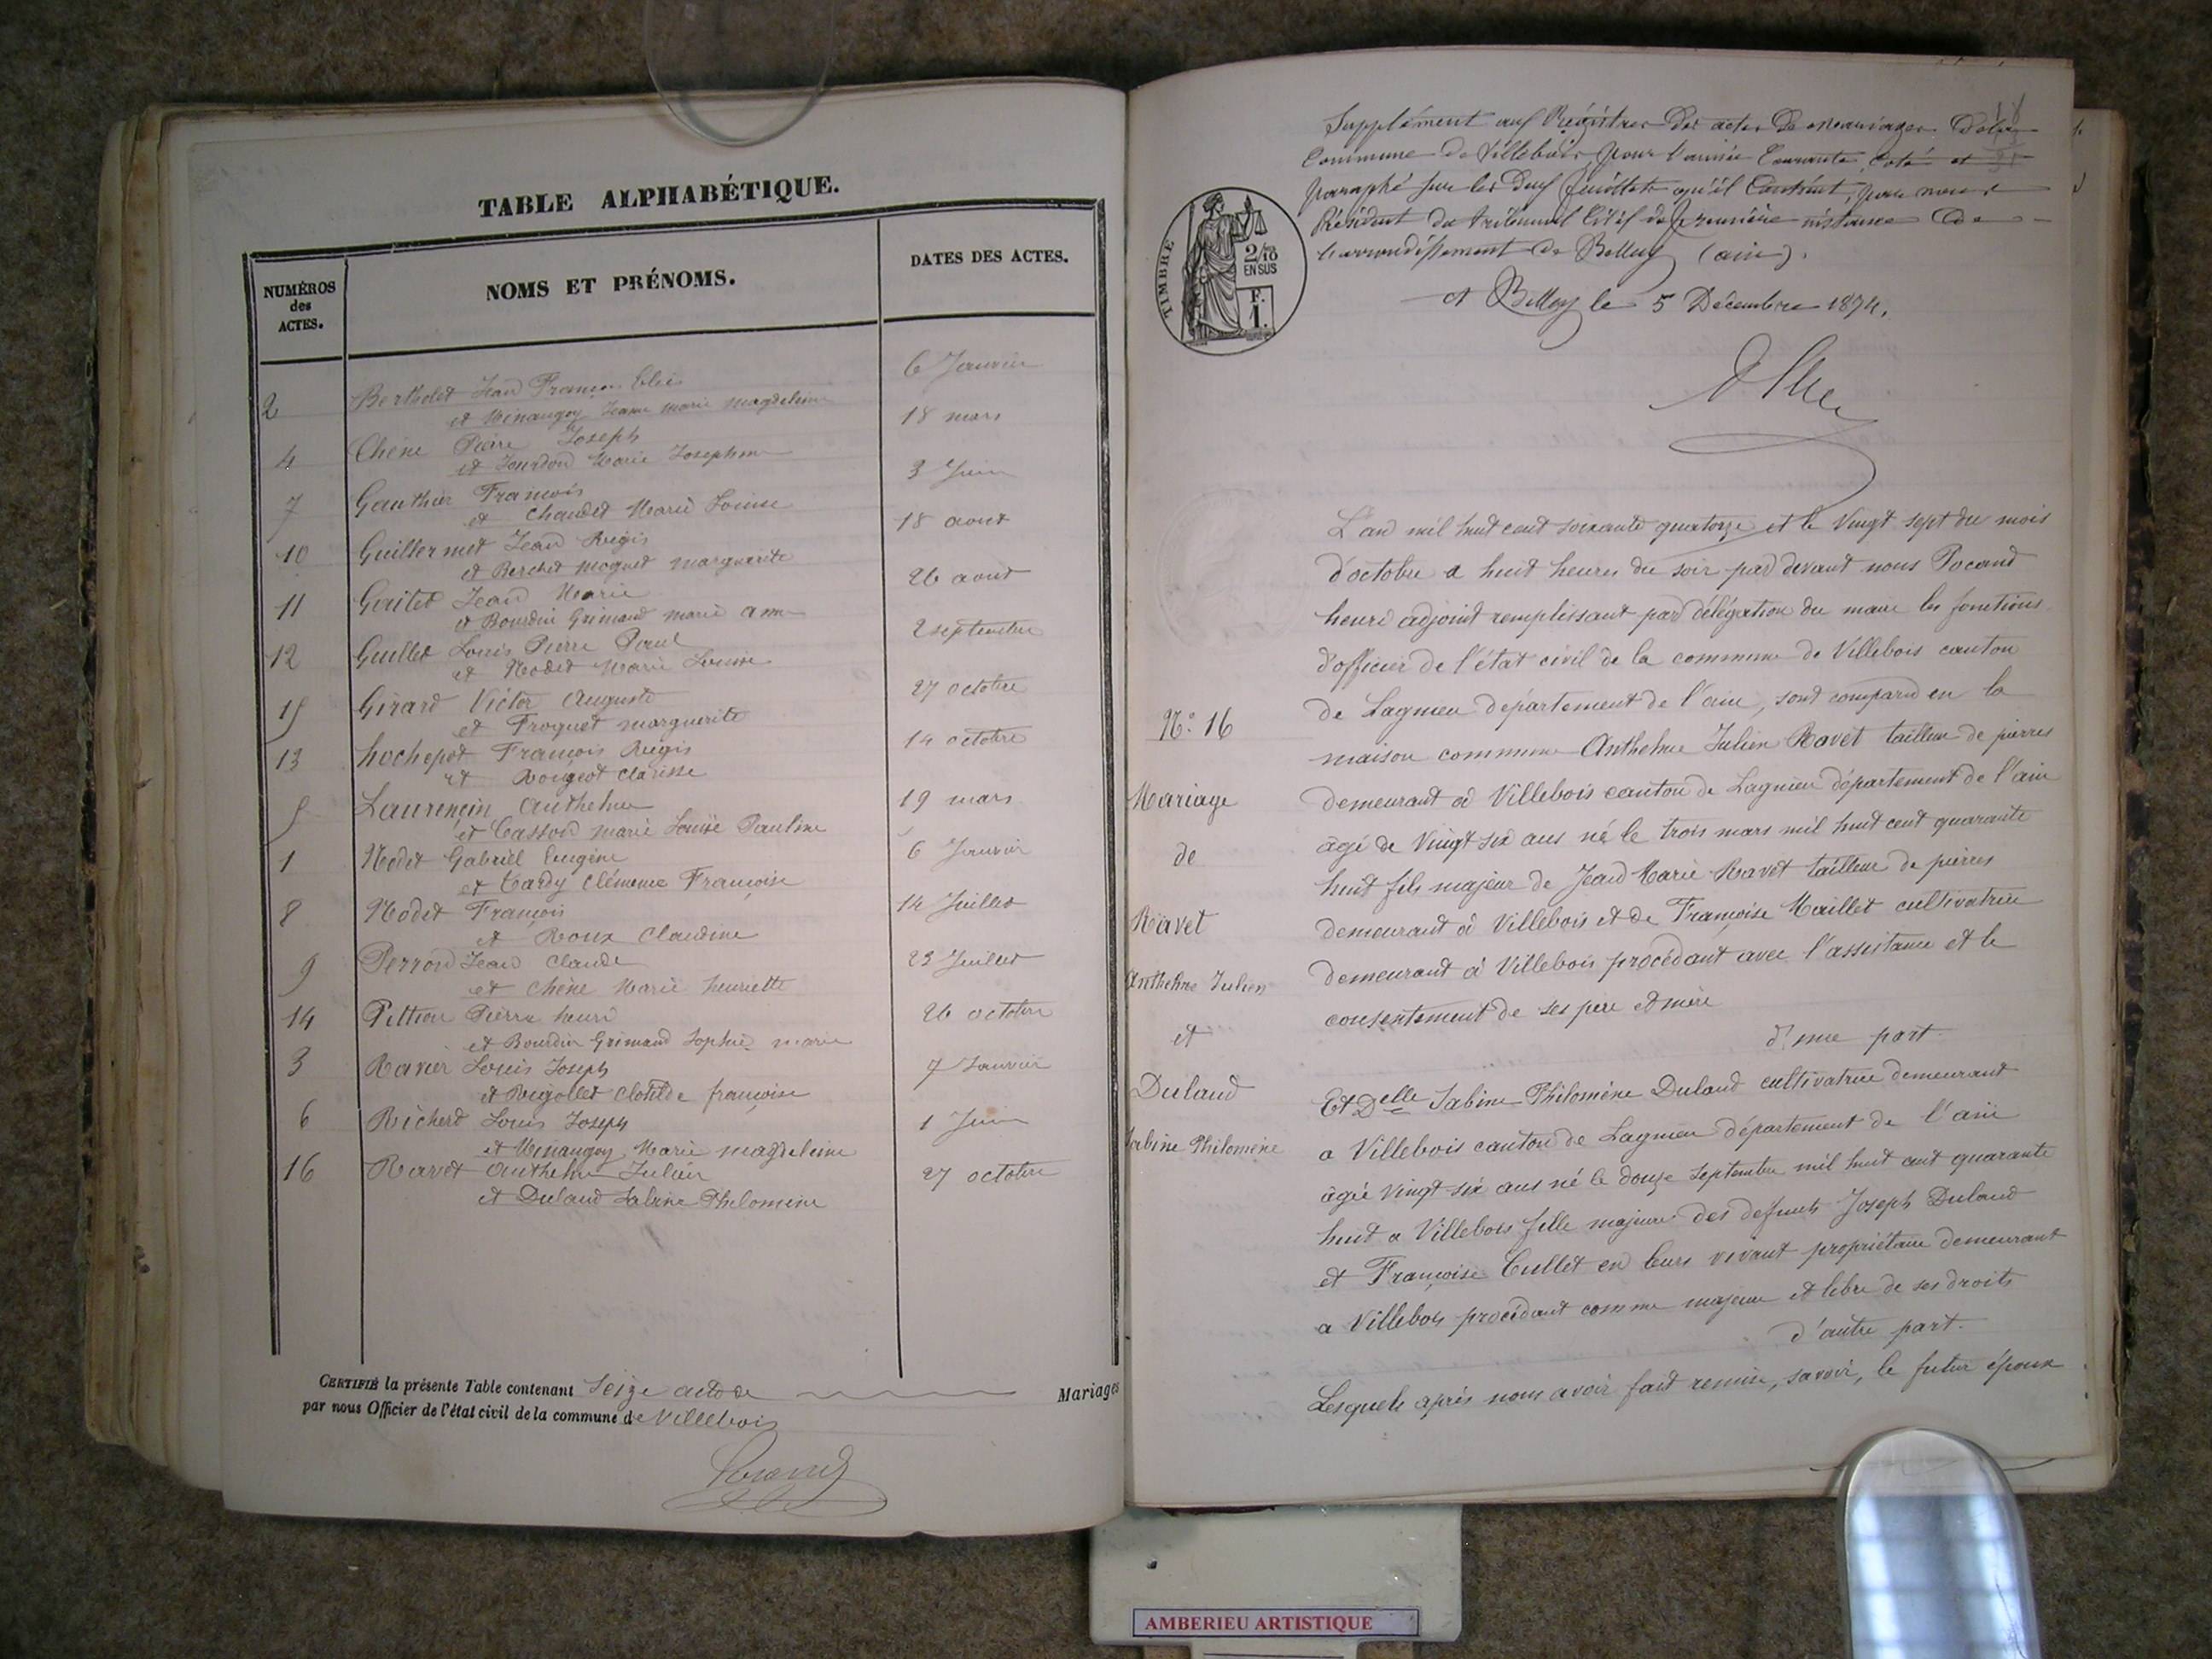 TABLE ALPHABÉTIQUE.
NUMÉROS des ACTES.
NOMS ET PRÉNOMS.
DATES DES ACTES.
2 Berthelet Jean François 6 Janvier
et Minangoy Jeanne marie magdeleine
4 Chêne Pierre Joseph 18 mars
et Jourdon Marie Josephine
7 Gauthier François 3 Juin
et Chaudet Marie Louise
10 Guillermet Jean Régis 18 aout
et Berchet Moguet marguerite
11 Guitet Jean Marie 26 aout
et Bourdin Grimaud marie anne
12 Guillet Louis Pierre Paul 2 septembre
et Modet Marie Louise
15 Girard Victor Auguste 27 octobre
et Froquet marguerite
13 hochepot François Régis 14 octobre
et Rougeot Clarisse
5 Laurençin Anthelme 19 mars
et Casson marie Louise Pauline
1 Modet Gabriel Eugène 6 Janvier
et Cardy Clémence Françoise
8 Modet François 14 Juillet
et Roux Claudine
9 Perron Jean Claude 23 Juillet
et Chêne Marie henriette
14 Pierre henri 26 octobre
et Bourdin Grimaud Sophie marie
3 Ravier Louis Joseph 7 Janvier
et Rigollet Clotilde françoise
6 Richerd Louis Joseph 1 Juin
et Minangoy Marie magdeleine
16 Ravet Anthelme Julien 27 octobre
et Dulaud Sabine Philomène
CERTIFIÉ la présente Table contenant Seize actes de Mariages
par nous Officier de l'état civil de la commune de Villebois
Pocand
Supplément aux Régistres des actes de mariages de la
Commune de Villebois, pour l'année Courante, coté et
paraphé sur les deux feuillets qu'il Contient, par nous
Président du tribunal Civil de première instance de
l'arrondissement de Belley (ain).
A Belley le 5 Décembre 1874.
TIMBRE
2/10 EN SUS
F. 1.
N° 16
Mariage
de
Ravet
Anthelme Julien
et
Dulaud
Sabine Philomène
L'an mil huit cent soixante quatorze et le Vingt sept du mois
d'octobre a huit heures du soir par devant nous Pocand
henri adjoint remplissant par délégation du maire les fonctions
d'officier de l'état civil de la commune de Villebois canton
de Lagnieu département de l'ain, sont comparu en la
maison commune Anthelme Julien Ravet tailleur de pierres
demeurant à Villebois canton de Lagnieu département de l'ain
âgé de Vingt six ans né le trois mars mil huit cent quarante
huit fils majeur de Jean Marie Ravet tailleur de pierres
demeurant à Villebois et de Françoise Maillet cultivatrice
demeurant à Villebois procédant avec l'assistance et le
consentement de ses pere et mère
d'une part
Et Delle Sabine Philomène Dulaud cultivatrice demeurant
a Villebois canton de Lagnieu département de l'ain
âgée Vingt six ans né le douze septembre mil huit cent quarante
huit a Villebois fille majeure des defunts Joseph Dulaud
et Françoise Cullet en leurs vivant propriétaire demeurant
a Villebois procédant comme majeure et libre de ses droits
d'autre part.
Lesquels après nous avoir fait remise, savoir, le futur époux
AMBERIEU ARTISTIQUE